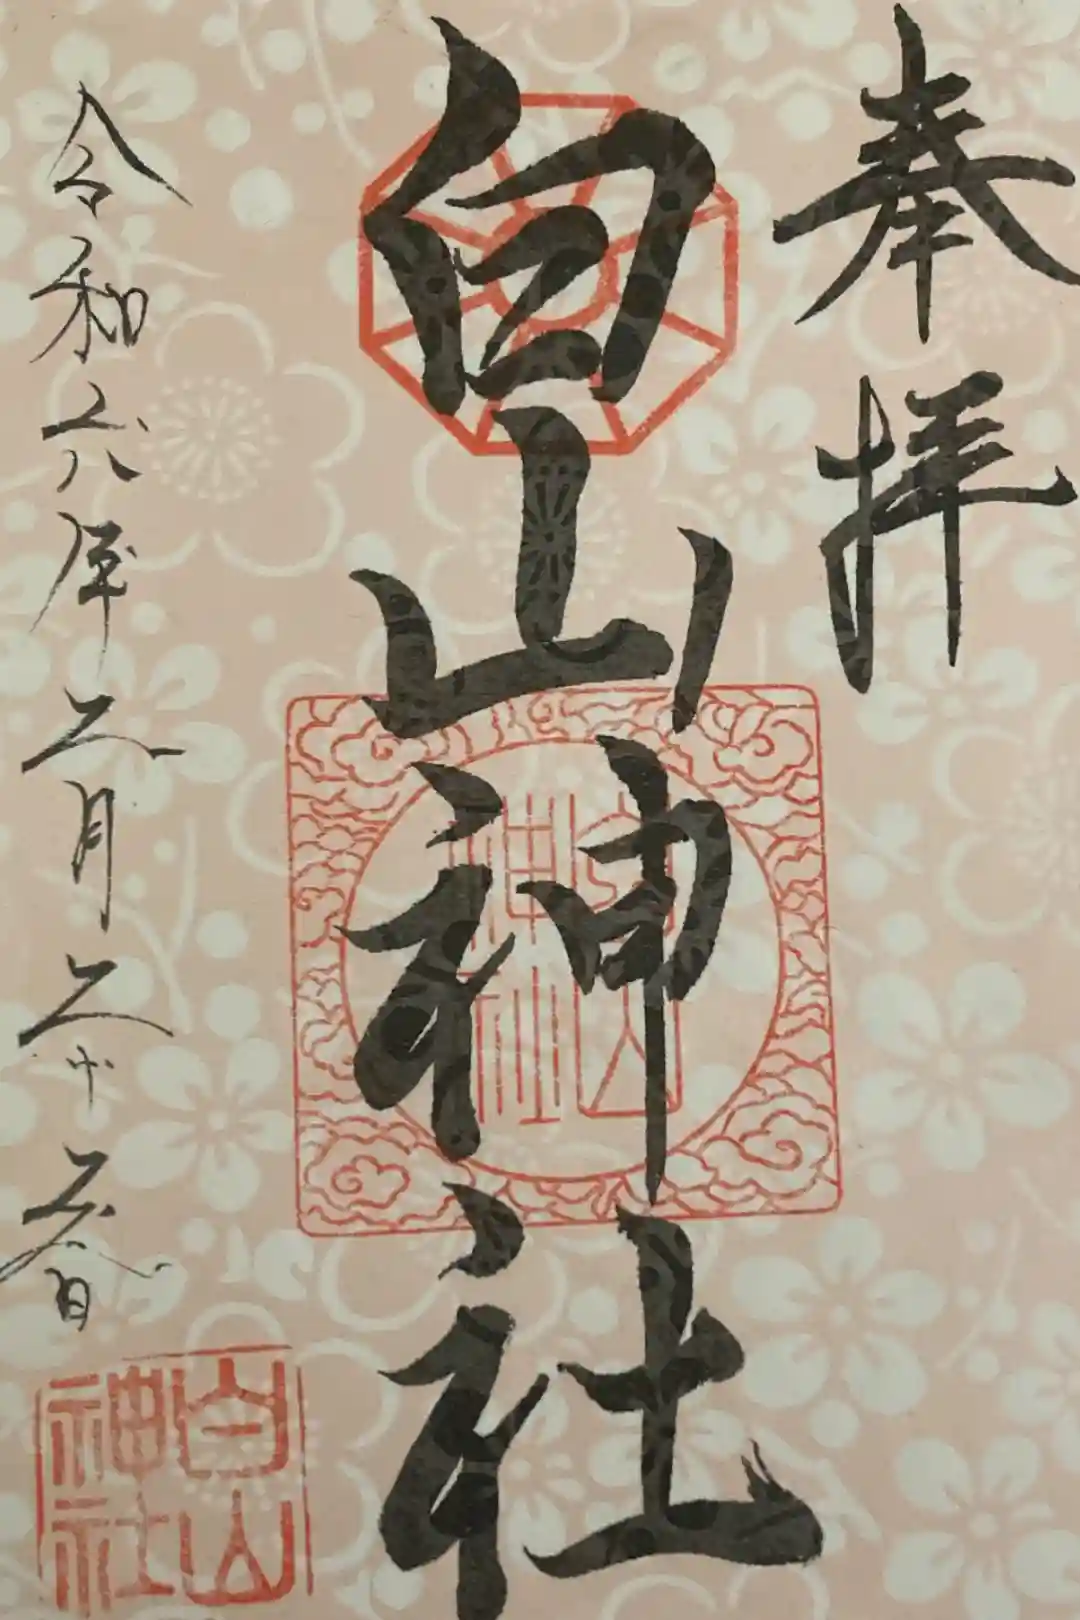 奉拝
白山神社
白山神社
令和六年二月二十五日
白山神社